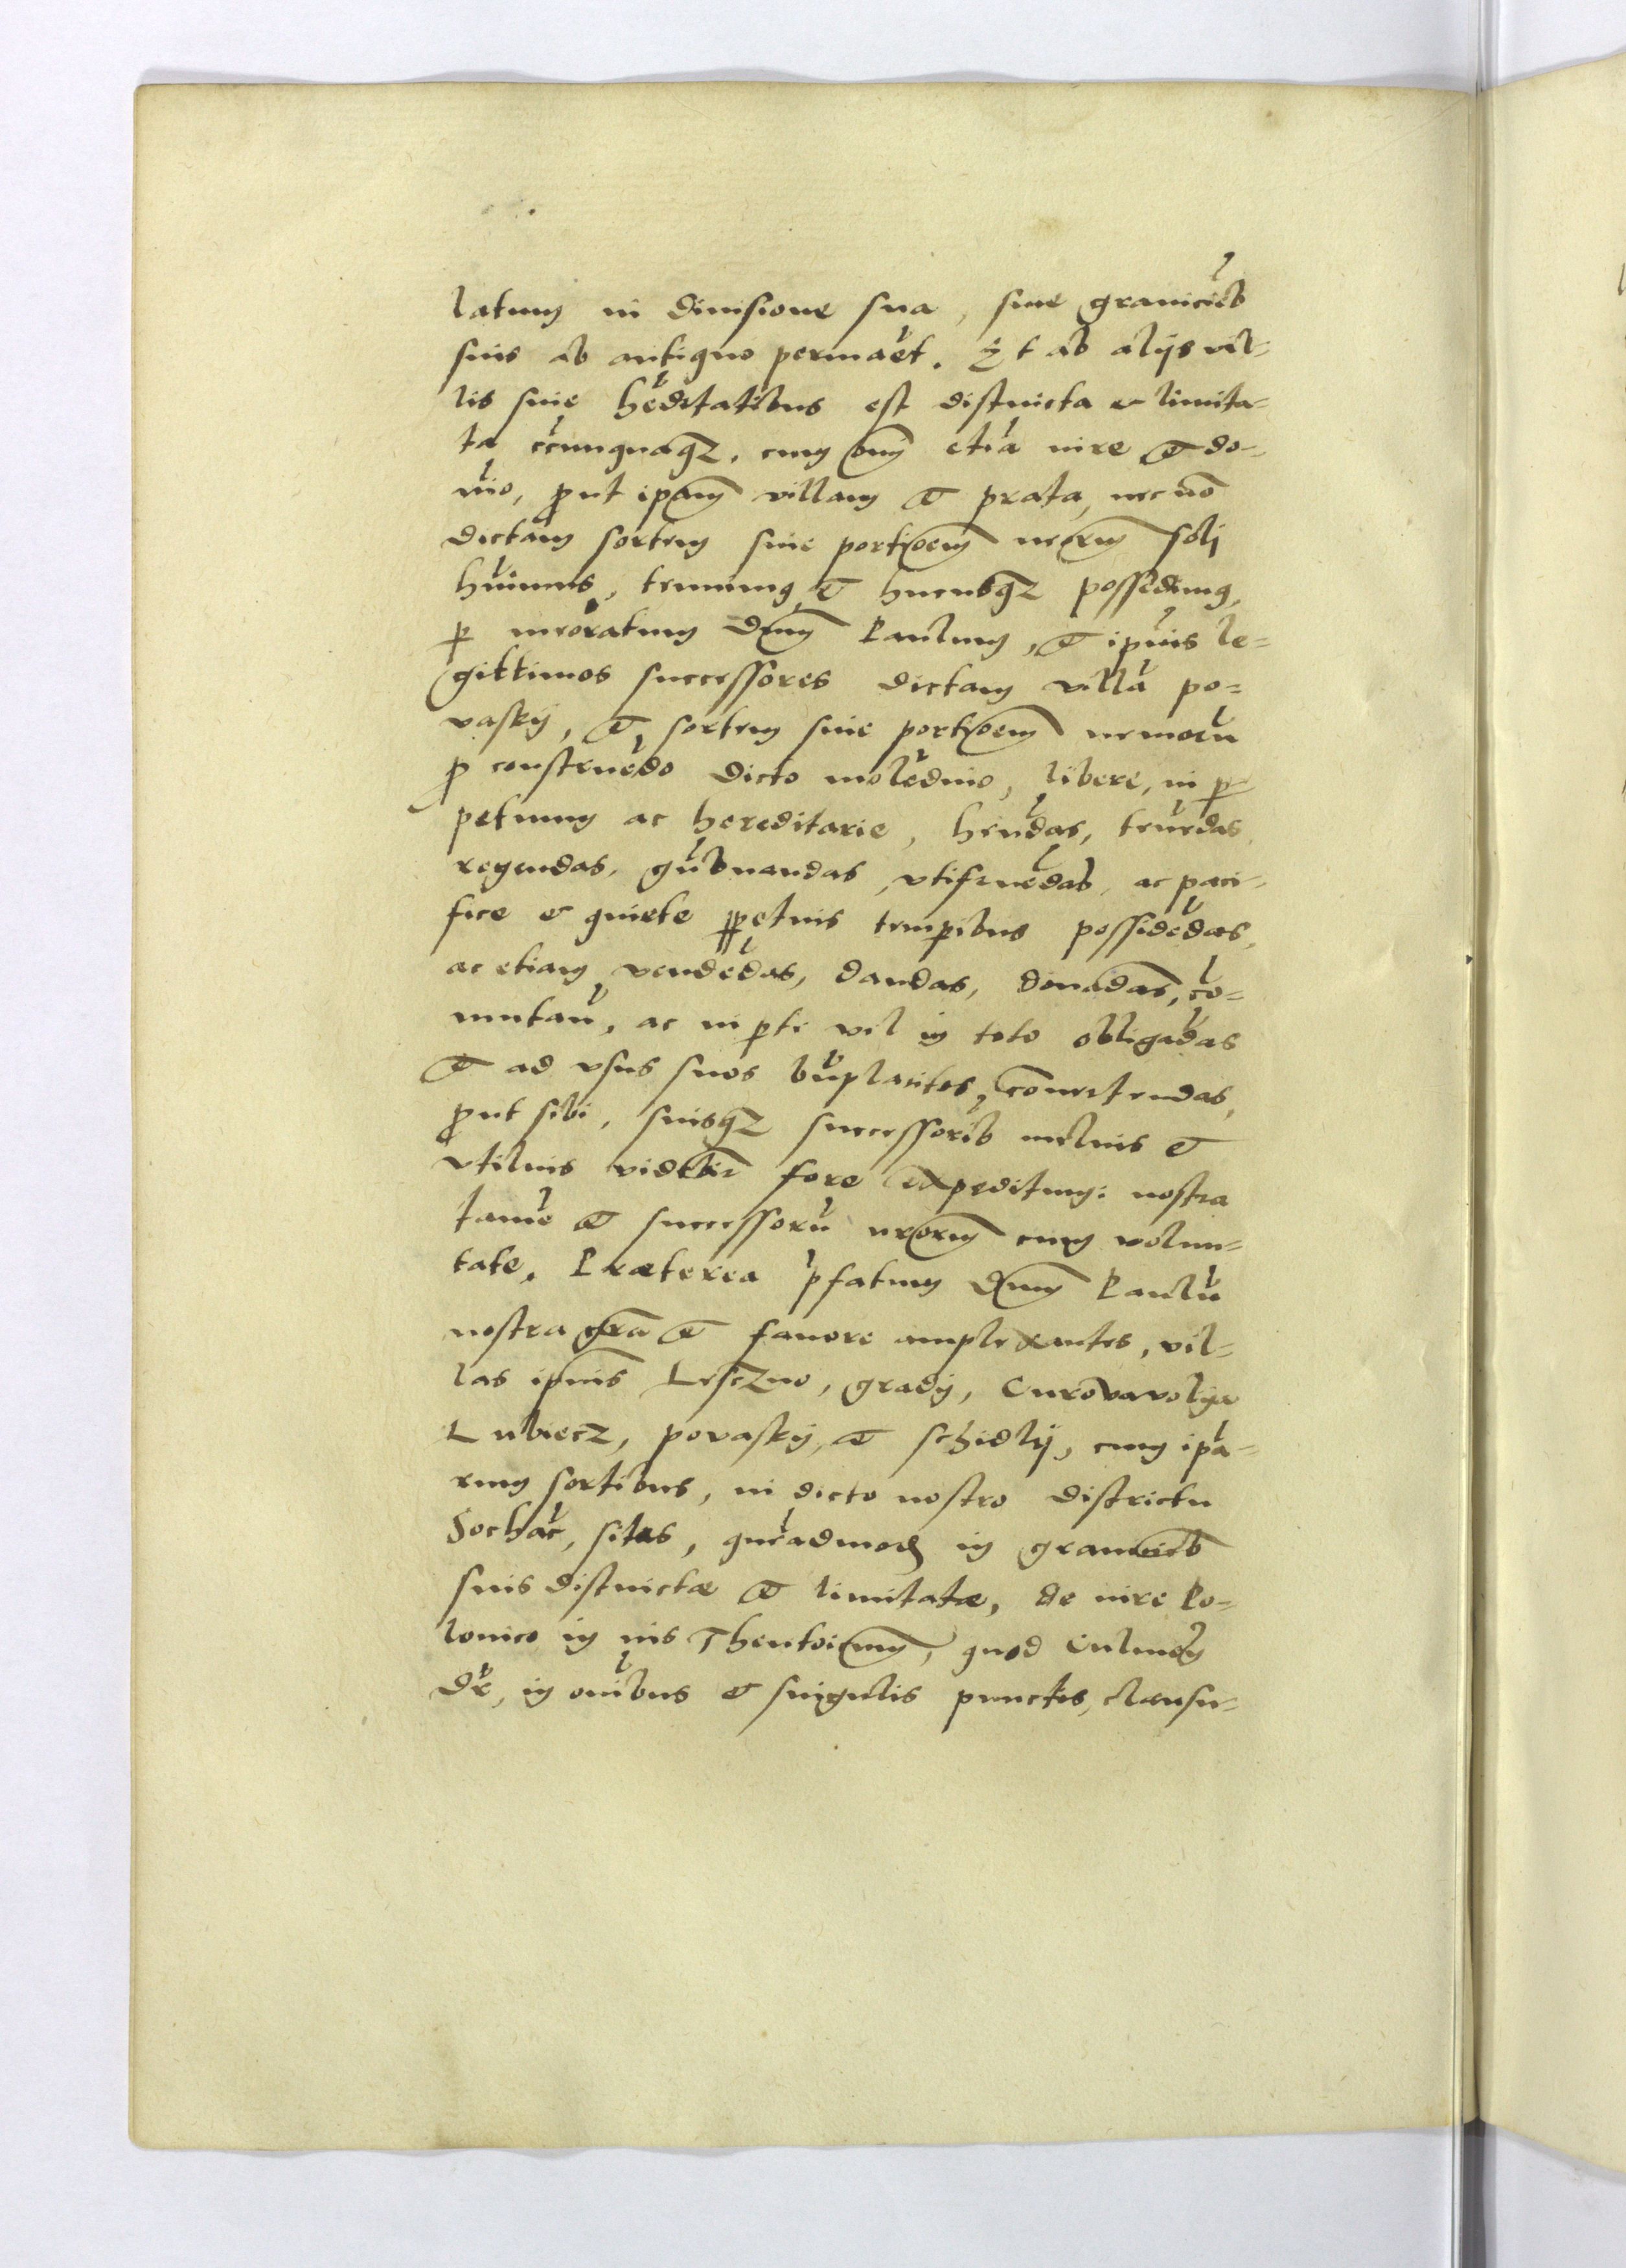 latum in diuisione sua, siue granicieb
suis ab antiquo permaet. Et ab alijs vil-
lis siue heditatibus est distincta & limita-
ta ccumquaqz, cum omi etia iure et do-
mio, prout ipam villam et prata, necno
dictam sortem siue portoem nrorum soli
huimus, tenuimus et hucusqz possedimus,
p meoratum Dnum Paulum, et ipius le-
gittimos successores dictam villa po-
vasky, et sortem siue portoem nemoru
p construedo dicto moledino, libere, in p-
petuum ac hereditarie, hendas, teneDas,
regendas, gubnandas, vtifruedas, ac paci-
fice & quiete ppetuis tempibus possidedas,
ac etiam vendedas, dandas, donadas, co-
mutan, ac in pte vel in toto obligadas
et ad vsus suos buplacitos, conuertendas,
prout sibi, suisqz successorib melius et
vtilius videbir fore expeditum: nostra
tame et successoru nrorum cum volun-
tate. Præterea pfatum Dnum Paulu
nostra gra et fauore amplexantes, vil-
las ipius Lesczno, grady, Curovavolya
Lubiecz, povasky, et schidly, cum ipa-
rum sortibus, in dicto nostro districtu
Sochac, sitas, queadmod in granicieb
suis distinctæ et limitatæ, de iure Po-
lonico in ius Theutoicum, quod Culmen
dr, in omibus & singulis punctis, clausu-